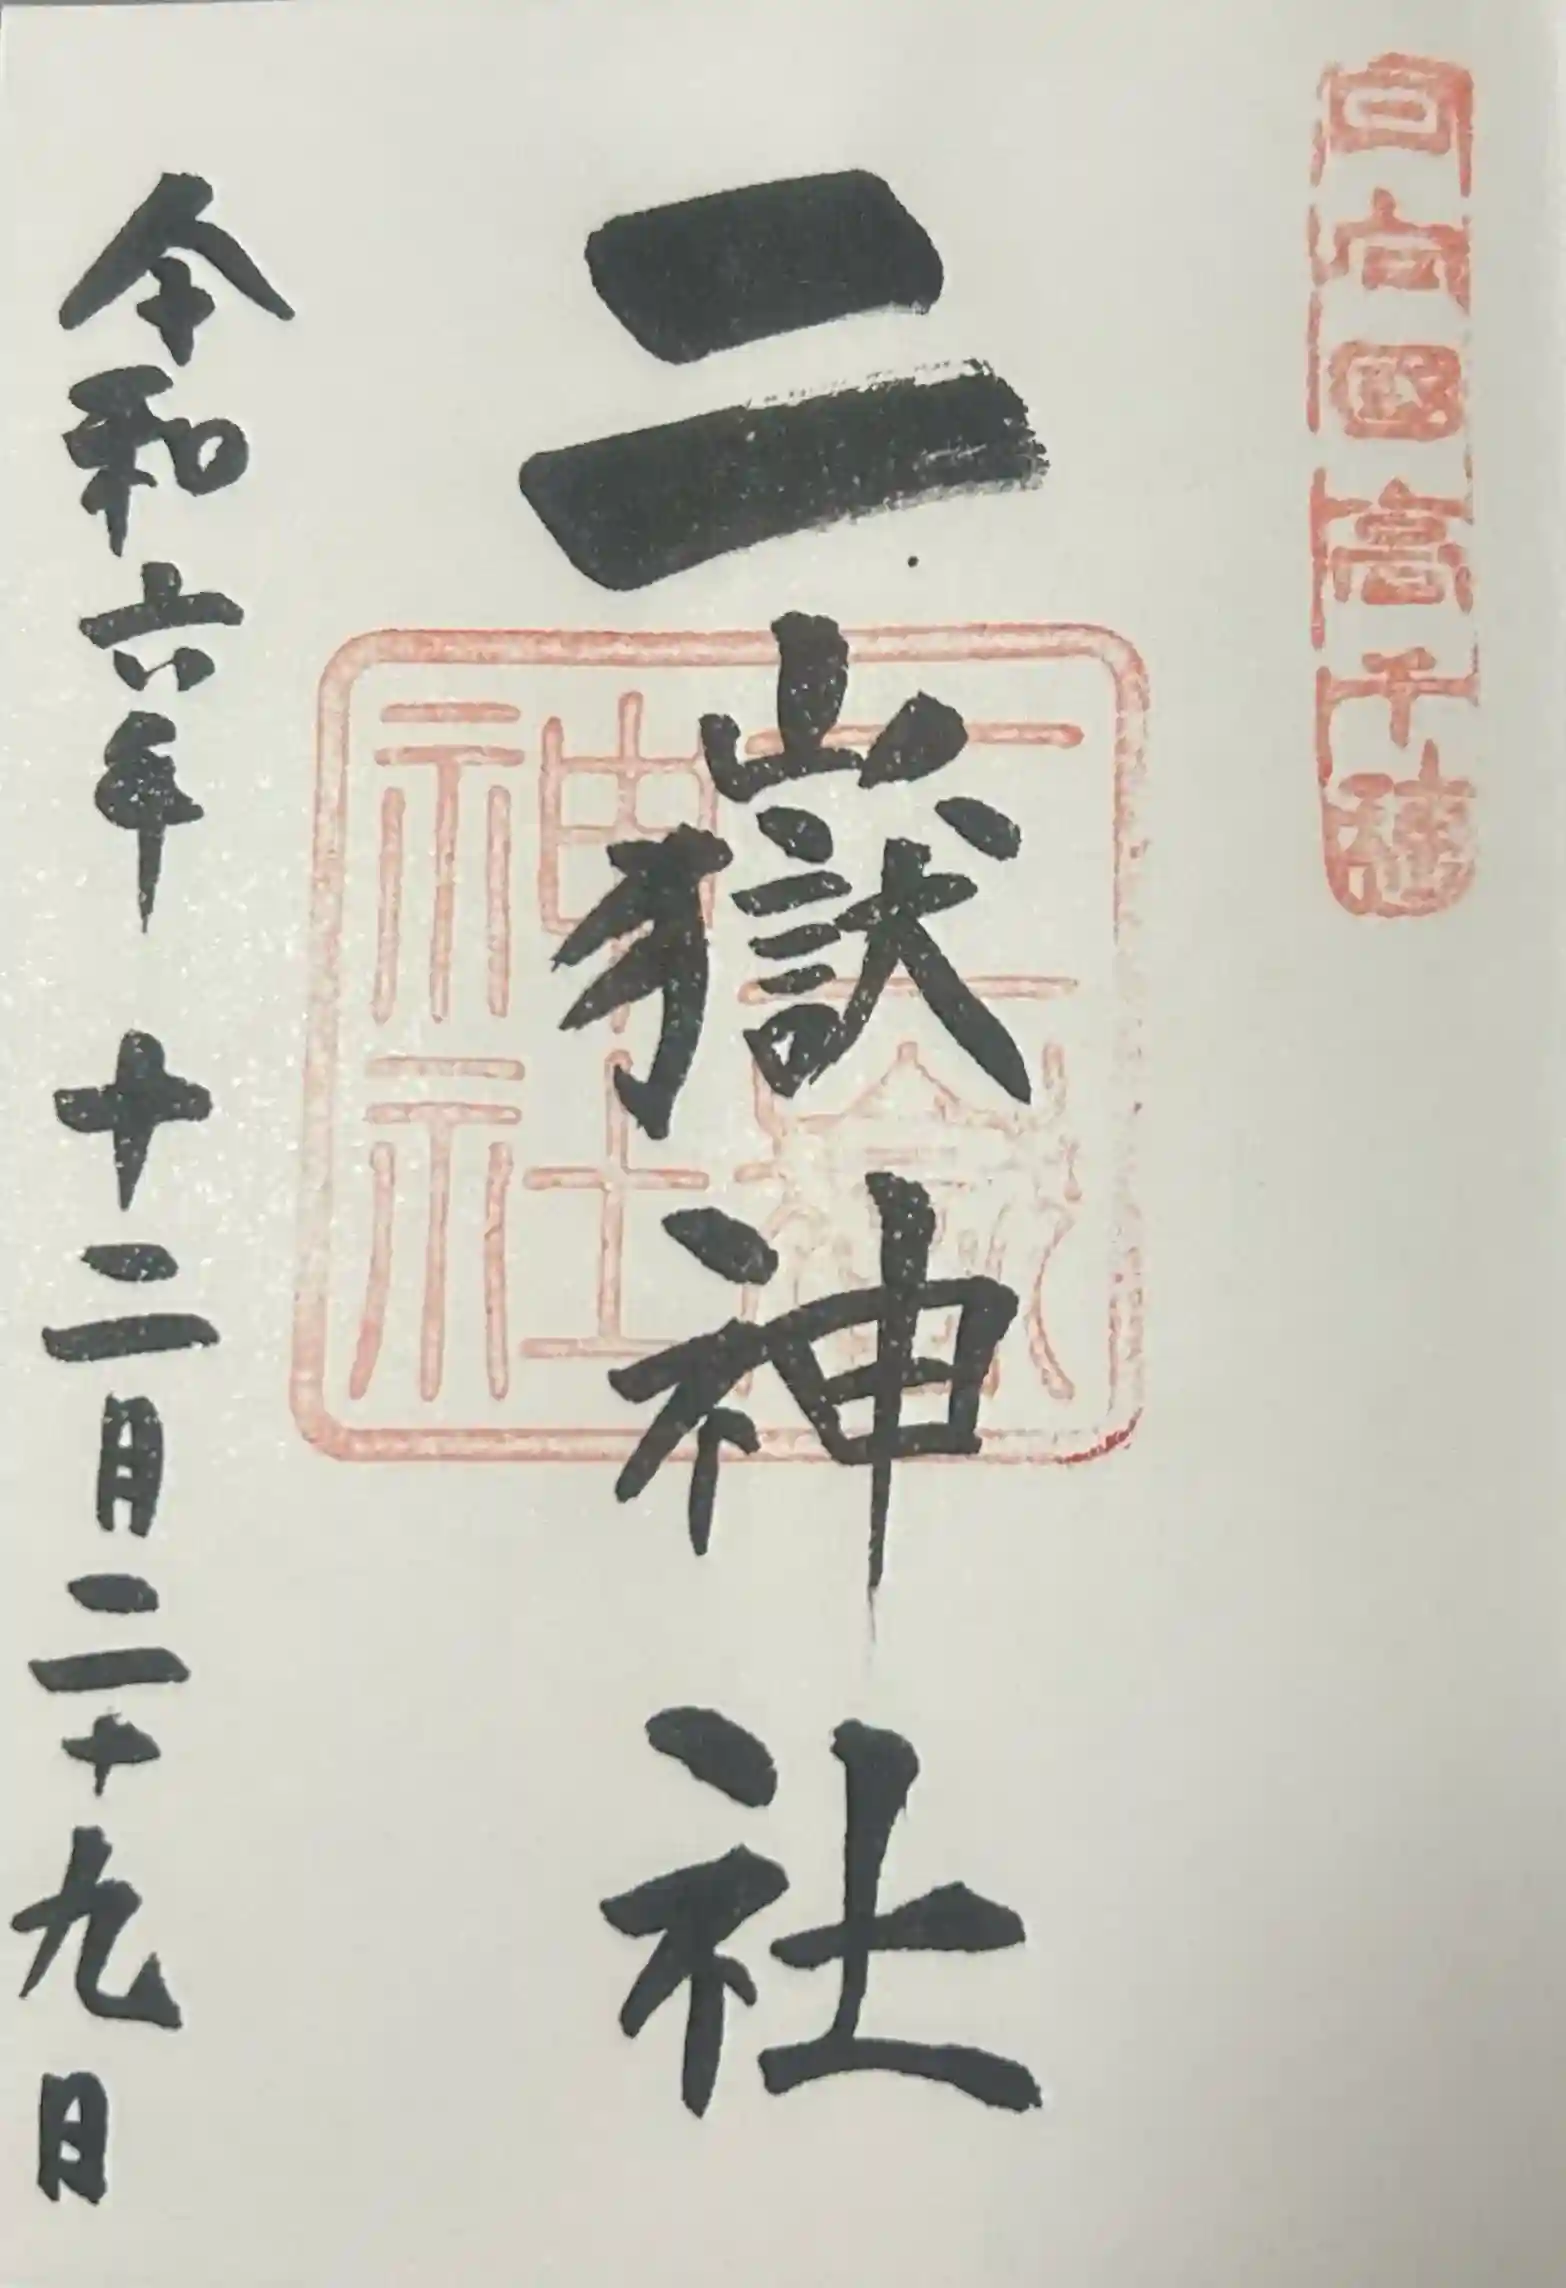 日向國高千穂
二嶽神社
二嶽
神社
令和六年 十二月二十九日